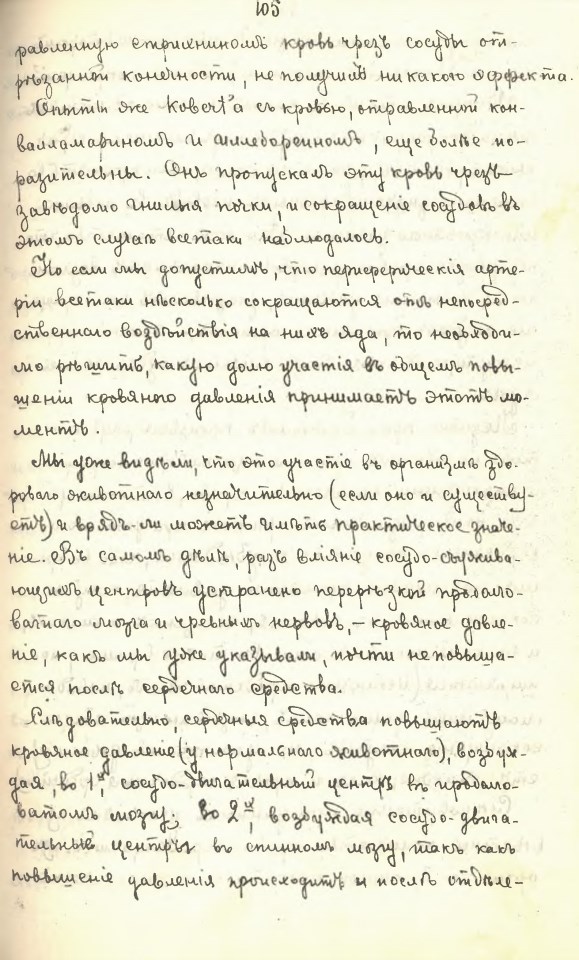 105
равленную стрихниномъ кровь чрезъ сосуды от-
рѣзанной конечности, не получилъ никакого эффекта.
Опыты же Kobert'а съ кровью, отравленной кон-
валламариномъ и иллебореиномъ, еще болѣе по-
разительны. Онъ пропускалъ эту кровь чрезъ
завѣдомо гнилыя почки, и сокращеніе сосудовъ въ
этомъ случаѣ всетаки наблюдалось.
Но если мы допустимъ, что периферическія арте-
ріи всетаки нѣсколько сокращаются отъ непосред-
ственнаго воздѣйствія на нихъ яда, то необходи-
мо рѣшить, какую долю участія въ общемъ повы-
шеніи кровяного давленія принимаетъ этотъ мо-
ментъ.
Мы уже видѣли, что это участіе въ организмѣ здо-
роваго животнаго незначительно (если оно и существу-
етъ) и врядъ-ли можетъ имѣть практическое значе-
ніе. Въ самомъ дѣлѣ, разъ вліяніе сосудо-съужива-
ющихъ центровъ устранено перерѣзкой продолго-
ватаго мозга и чревныхъ нервовъ, – кровяное давле-
ніе, какъ мы уже указывали, почти не повыша-
ется послѣ сердечнаго средства.
Слѣдовательно, сердечныя средства повышаютъ
кровяное давленіе (у нормальнаго животнаго), возбуж-
дая, во 1ыхъ, сосудо-двигательный центръ въ продолго-
ватомъ мозгу; во 2ыхъ, возбуждая сосудо-двига-
тельные центры въ спинномъ мозгу, такъ какъ
повышеніе давленія происходитъ и послѣ отдѣле-